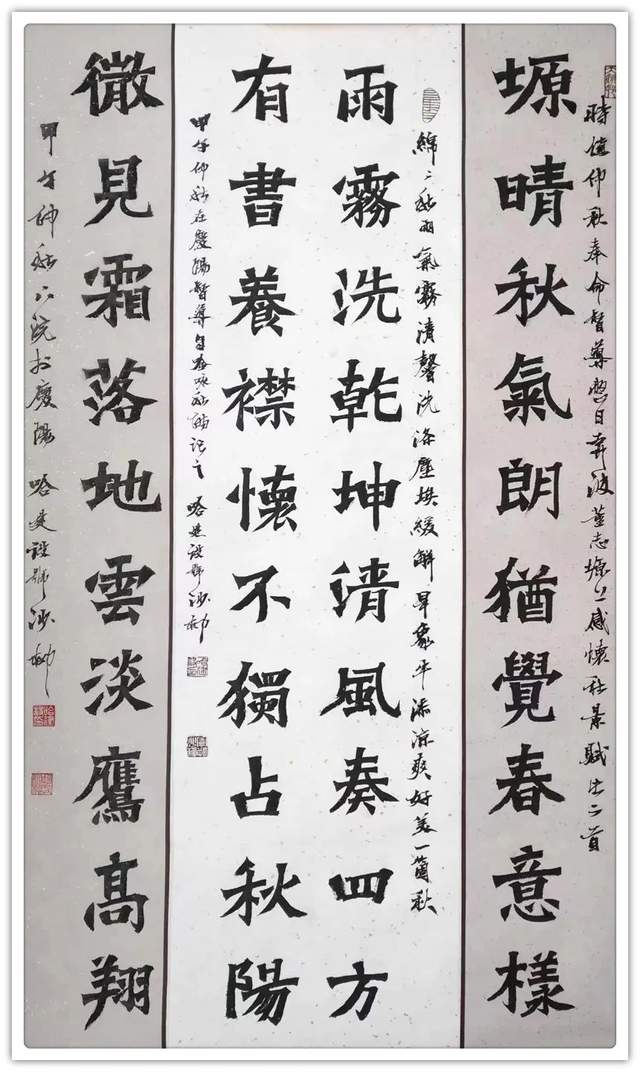 時值仲秋奉命督導日奔波董志塬上感懷秋景賦此二首
塬晴秋氣朗猶覺春意樣
綿〻秋雨氣霧清馨洗滌塵埃緩解旱象平添涼爽好美一箇秋
雨霧洗乾坤清風奏四方
有書養襟懷不獨占秋陽
甲午仲秋在慶陽督導咏秋記之 哈建設號沙柳
微見霜落地雲淡鷹髙翔
甲午仲秋下浣於慶陽 哈建設號沙柳